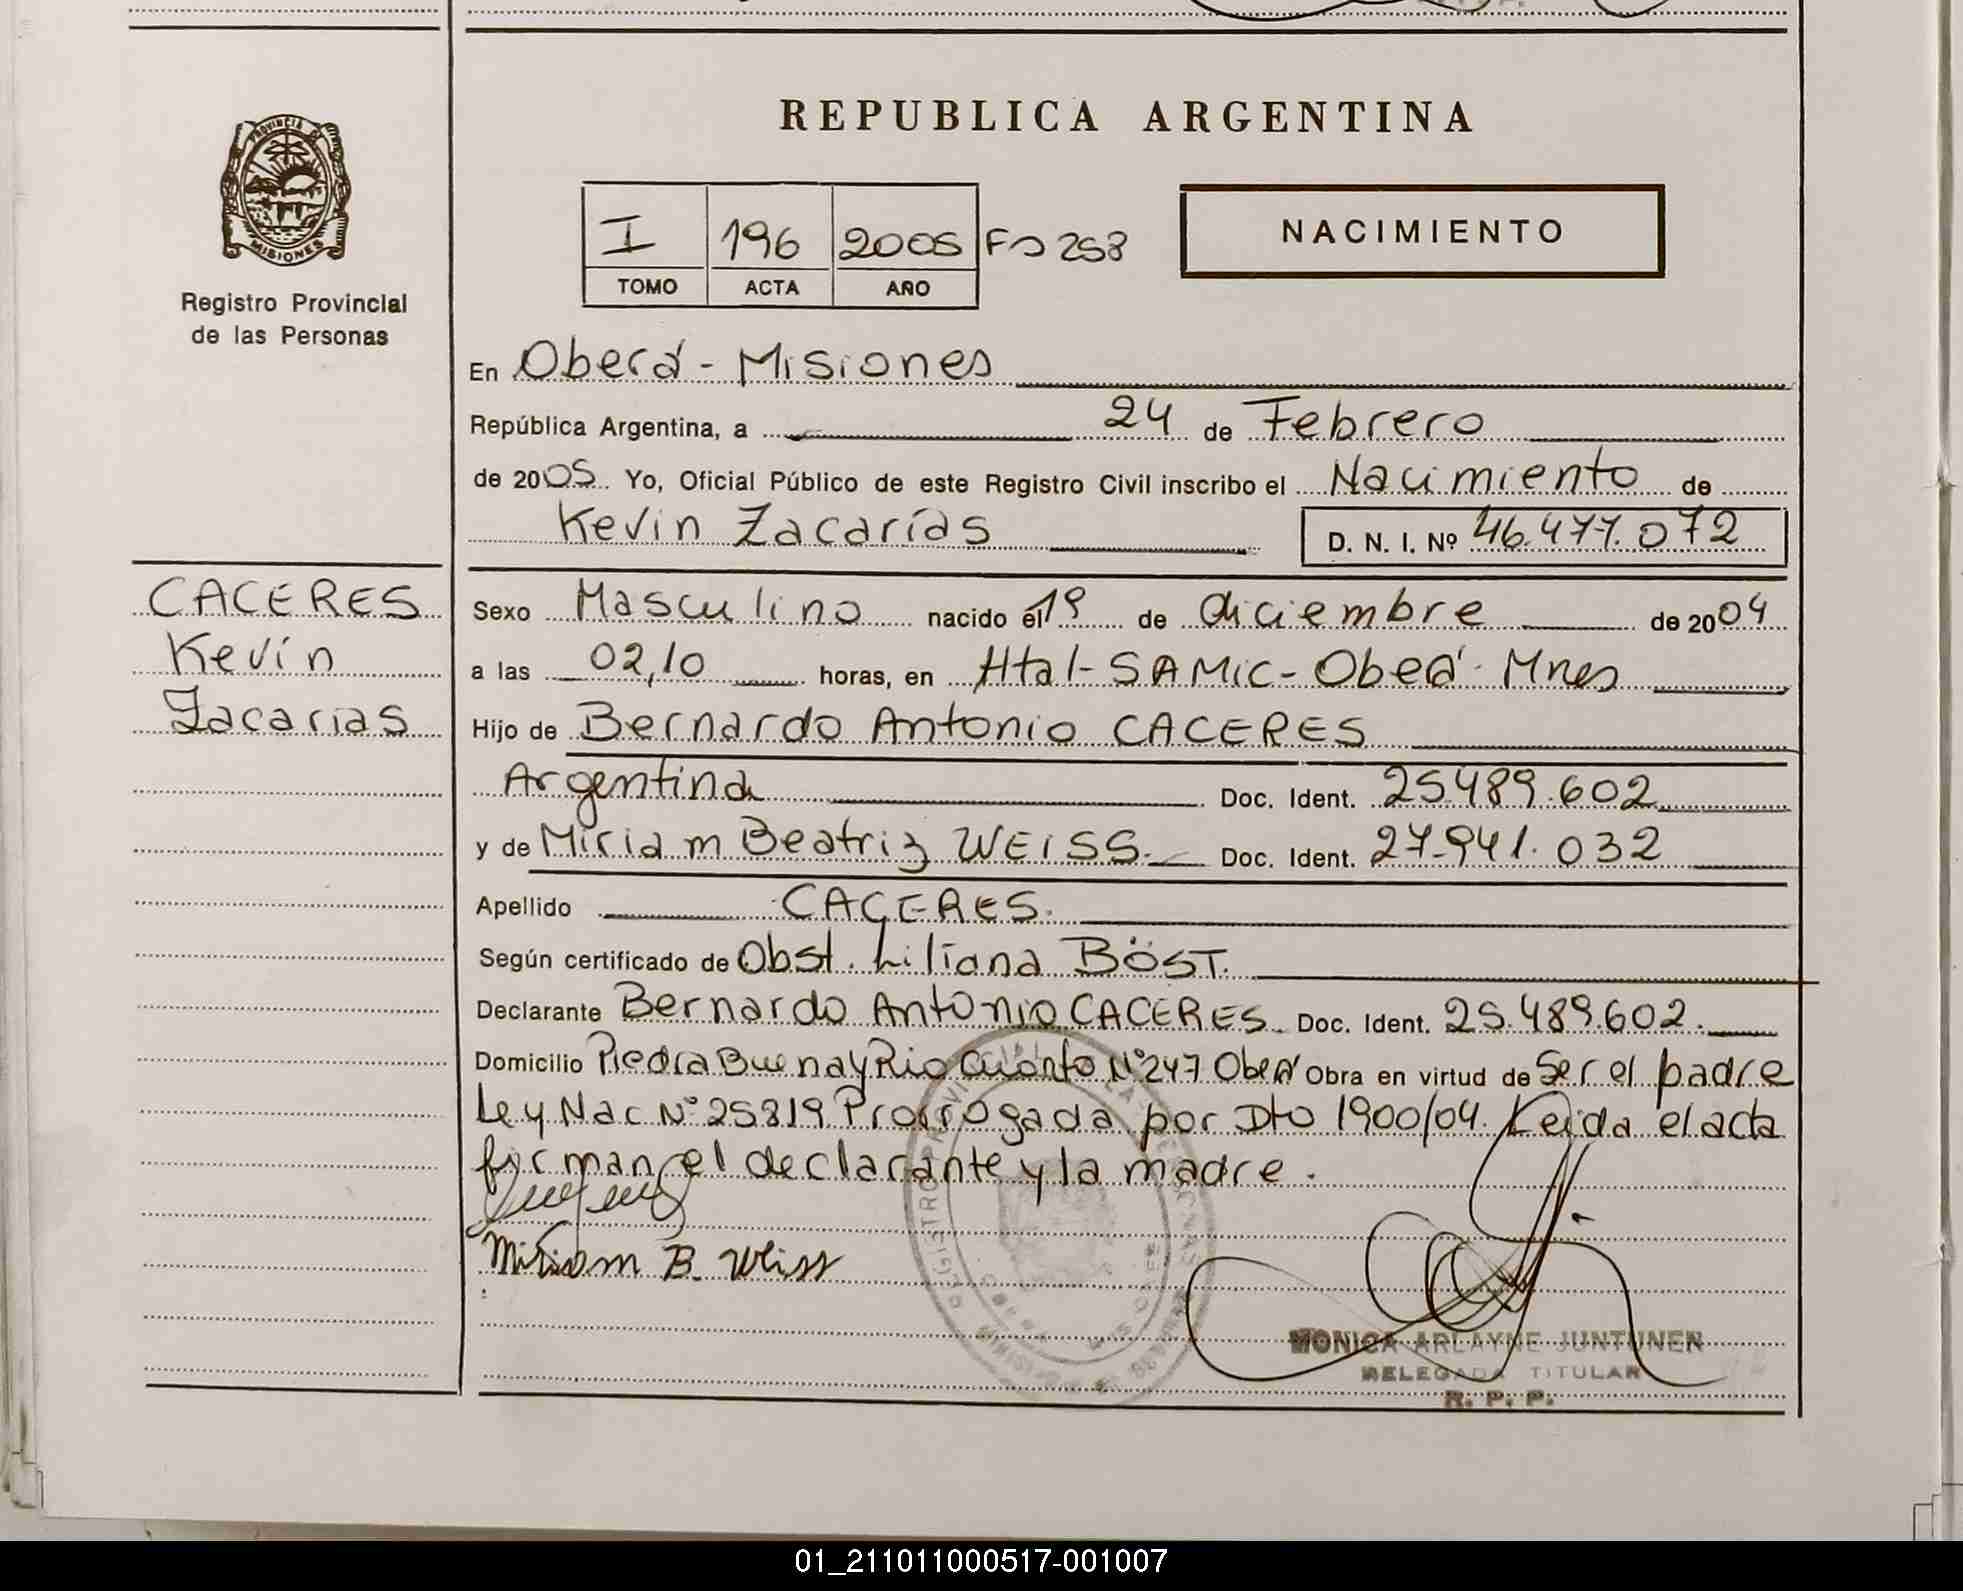 PROVINCIA DE
MISIONES
Registro Provincial
de las Personas
REPUBLICA ARGENTINA
I 196 2005 Fo 258
TOMO ACTA AÑO
NACIMIENTO
En Oberá - Misiones
República Argentina, a 24 de Febrero
de 2005 Yo, Oficial Público de este Registro Civil inscribo el Nacimiento de
Kevin Zacarías D. N. I. Nº 46.477.072
CACERES
Kevin
Zacarias
Sexo Masculino nacido el 19 de diciembre de 2004
a las 02,10 horas, en Htal-SAMIC-Oberá-Mnes
Hijo de Bernardo Antonio CACERES
Argentina Doc. Ident. 25.489.602
y de Miriam Beatriz WEISS. Doc. Ident. 27.941.032
Apellido CACERES.
Según certificado de Obst. Liliana BÖST.
Declarante Bernardo Antonio CACERES Doc. Ident. 25.489.602.
Domicilio Piedra Buena y Rio Cuarto Nº 247 Oberá Obra en virtud de Ser el padre
Ley Nac Nº 25819 Prorrogada por Dto 1900/04. Leida el acta
firman el declarante y la madre.
Miriam B. Weiss
MONICA ARLAYNE JUNTUNEN
DELEGADA TITULAR
R. P. P.
01_211011000517-001007